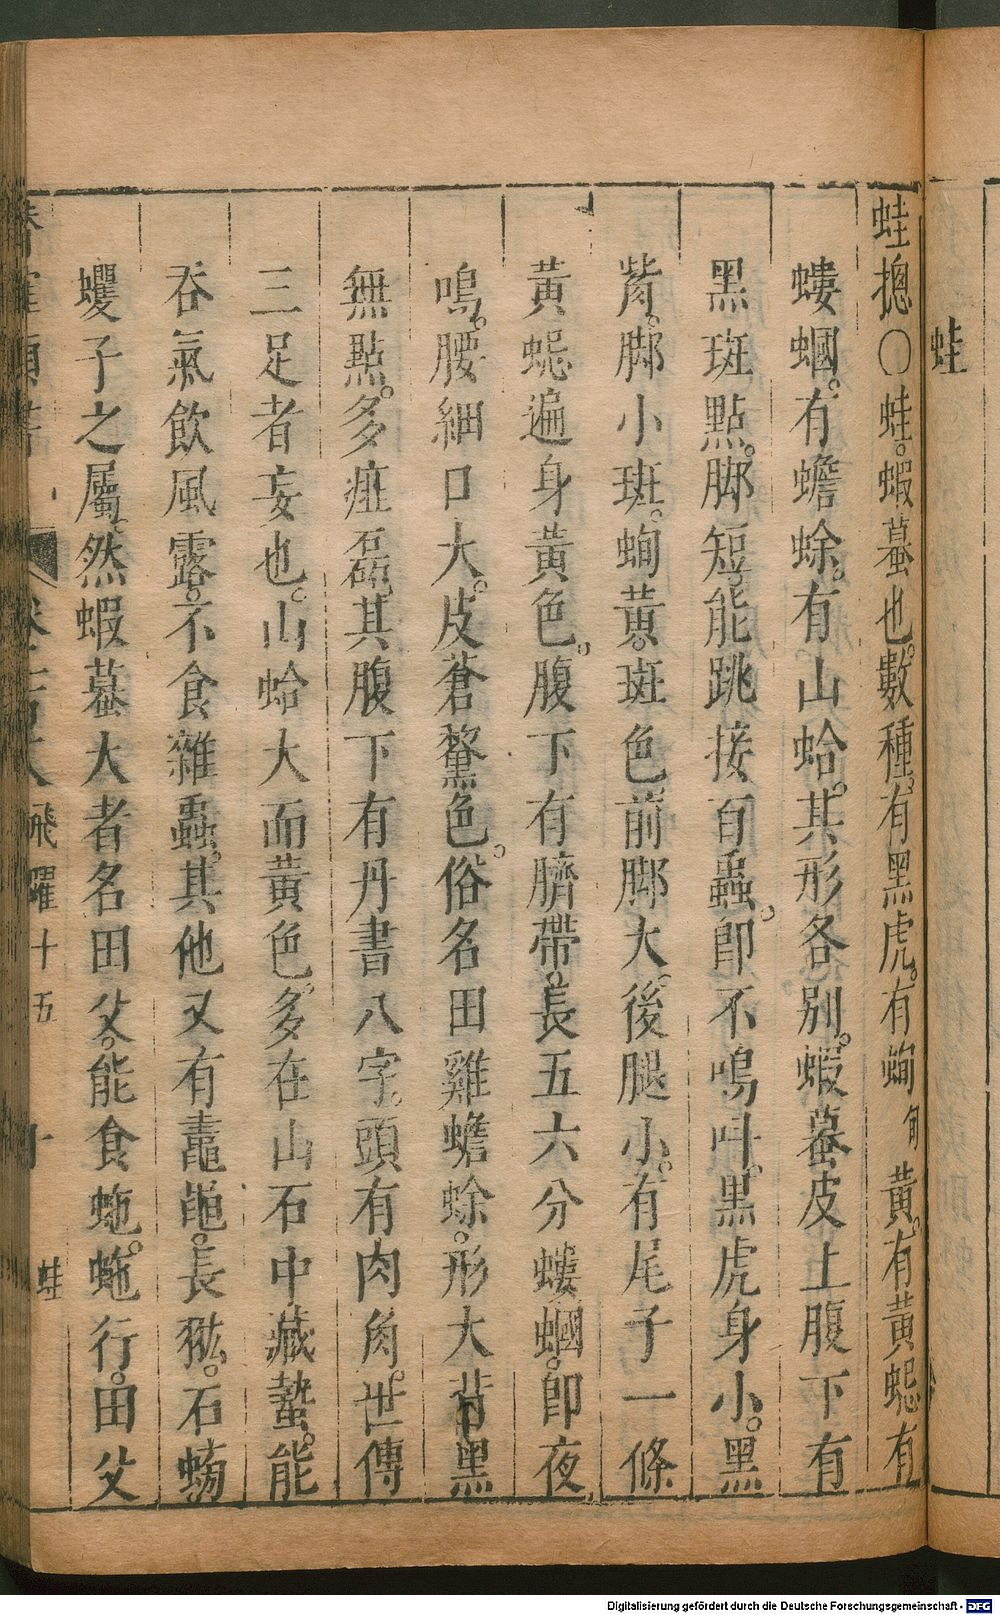 蛙
蛙摠〇蛙。蝦蟇也。數種。有黑虎。有蚼（句）黃。有黃䖡。有
螻蟈。有蟾蜍。有山蛤。其形各別。蝦蟇皮上腹下有
黑斑點。脚短。能跳接百蟲。卽不鳴叫。黑虎身小。黑
觜。脚小斑。蚼黃。斑色前脚大。後腿小。有尾子一條
黃䖡遍身黃色。腹下有臍帶。長五六分螻蟈。卽夜
鳴。腰細口大。皮蒼黧色。俗名田雞蟾蜍。形大背黑
無點。多痱磊其腹下有丹書八字。頭有肉角。世傳
三足者妄也。山蛤大而黃色。多在山石中藏蟄。能
吞氣飲風露。不食雜蟲。其他又有鼃黽。長肱。石蝪
蠼子之屬。然蝦蟇大者名田父。能食虵。虵行。田父
飛躍十五
蛙
Digitalisierung gefördert durch die Deutsche Forschungsgemeinschaft - DFG